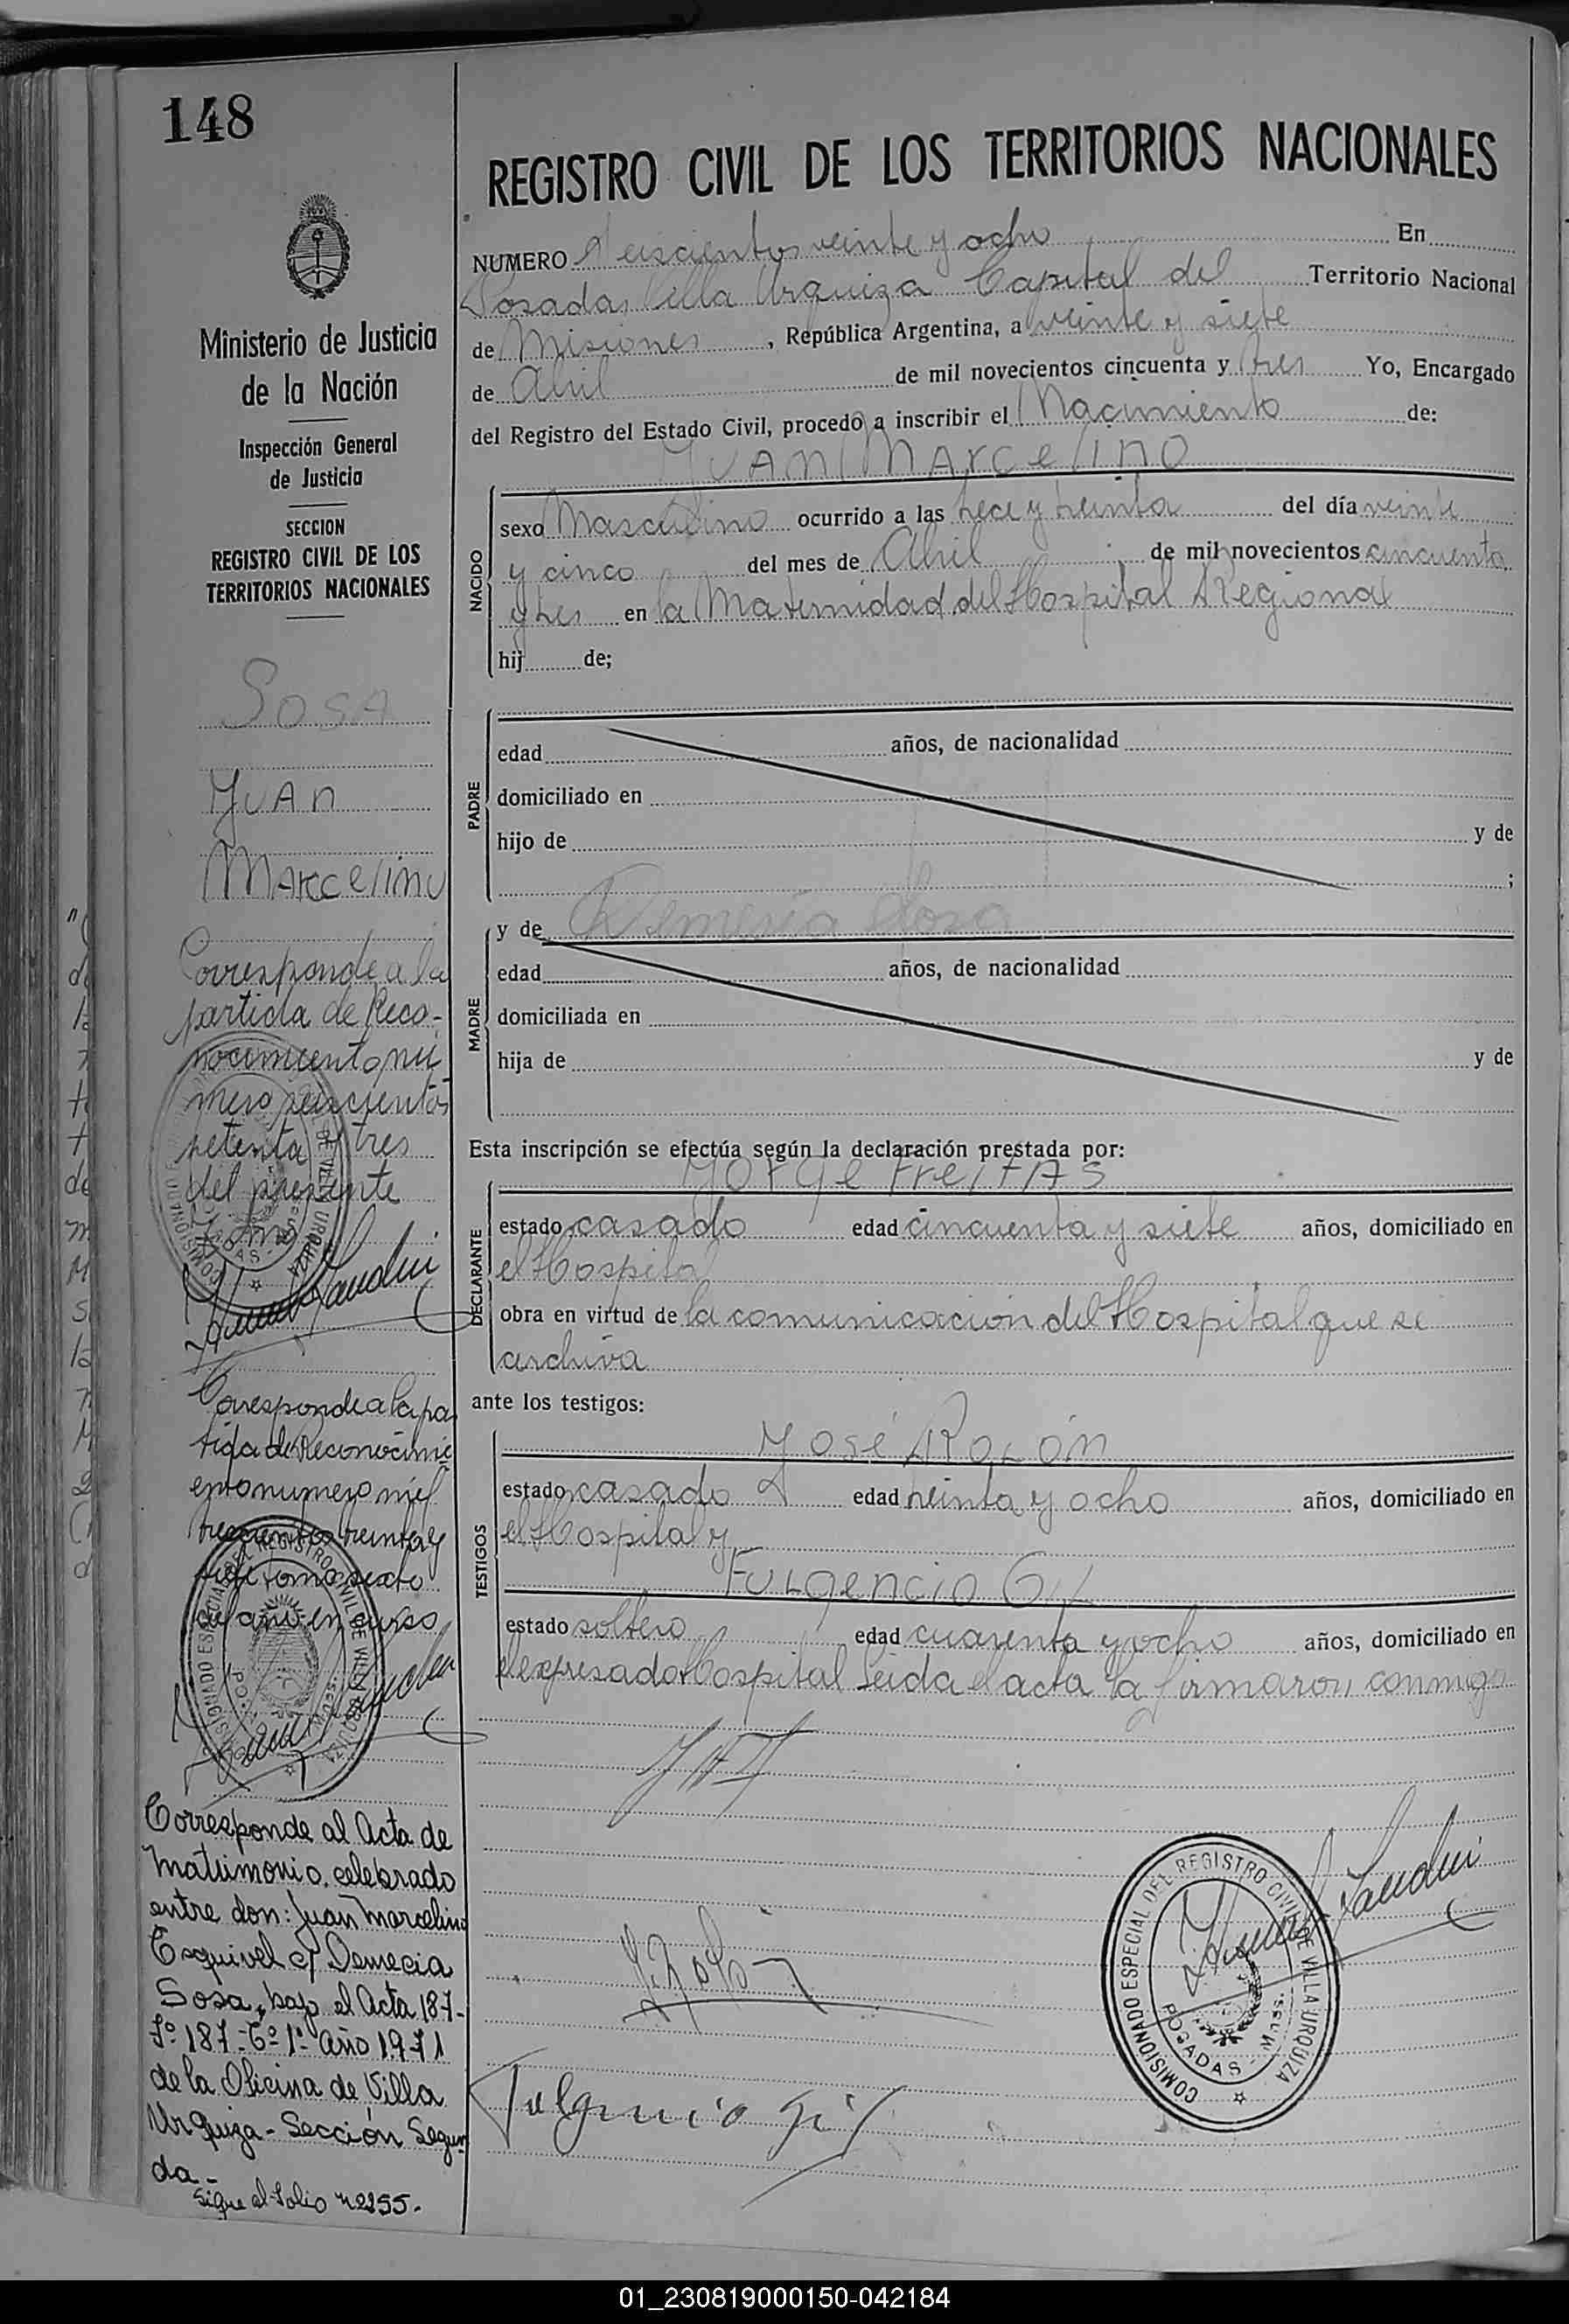 148
Ministerio de Justicia
de la Nación
Inspección General
de Justicia
SECCION
REGISTRO CIVIL DE LOS
TERRITORIOS NACIONALES
Sosa
Juan
Marcelino
Corresponde a la
partida de Reco-
nocimiento nú
mero seiscientos
setenta y tres
del presente
Corresponde a la par
tida de Reconocimi
ento numero mil
trescientos treinta y
siete tomo sexto
del año en curso
Corresponde al Acta de
Matrimonio celebrado
entre don: Juan Marcelino
Esquivel c/ Demecia
Sosa, bajo el Acta 187-
Fº 187-Tº 1º año 1971
de la Oficina de Villa
Urquiza - Sección Segun
da -
Sigue al folio nº 255.
REGISTRO CIVIL DE LOS TERRITORIOS NACIONALES
NUMERO Seiscientos veinte y ocho En
Posadas Villa Urquiza Capital del Territorio Nacional
de Misiones, República Argentina, a veinte y siete
de Abril de mil novecientos cincuenta y tres Yo, Encargado
del Registro del Estado Civil, procedo a inscribir el Nacimiento de:
Juan Marcelino
NACIDO
sexo Masculino ocurrido a las trece y treinta del día veinte
y cinco del mes de Abril de mil novecientos cincuenta
y tres en la Maternidad del Hospital Regional
hij de;
PADRE
edad años, de nacionalidad
domiciliado en
hijo de y de
;
MADRE
y de Demesia Sosa
edad años, de nacionalidad
domiciliada en
hija de y de
Esta inscripción se efectúa según la declaración prestada por:
Jorge Freitas
DECLARANTE
estado casado edad cincuenta y siete años, domiciliado en
el Hospital
obra en virtud de la comunicación del Hospital que se
archiva
ante los testigos:
José Rolón
TESTIGOS
estado casado edad treinta y ocho años, domiciliado en
el Hospital y
Fulgencio Gil
estado soltero edad cuarenta y ocho años, domiciliado en
el expresado Hospital Leida el acta la firmaron conmigo
COMISIONADO ESPECIAL DEL REGISTRO CIVIL DE VILLA URQUIZA
POSADAS - Mnes.
Fulgencio Gil
01_230819000150-042184